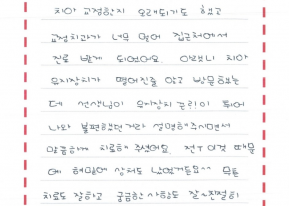 치아 교정한지 오래되기도 했고
교정치과가 너무 멀어 집근처에서
진료 받게 되었어요. 치아
유지장치가 떨어진줄 알고 방문했는
데 선생님이 유지장치 튀어
나와 불편했던거라 설명해주시면서
말끔하게 치료해 주셨어요. 이것 때문
에 혀밑에 상처도 났었거든요^^ 무튼
치료도 잘하고 궁금한 사항도 잘~친절히